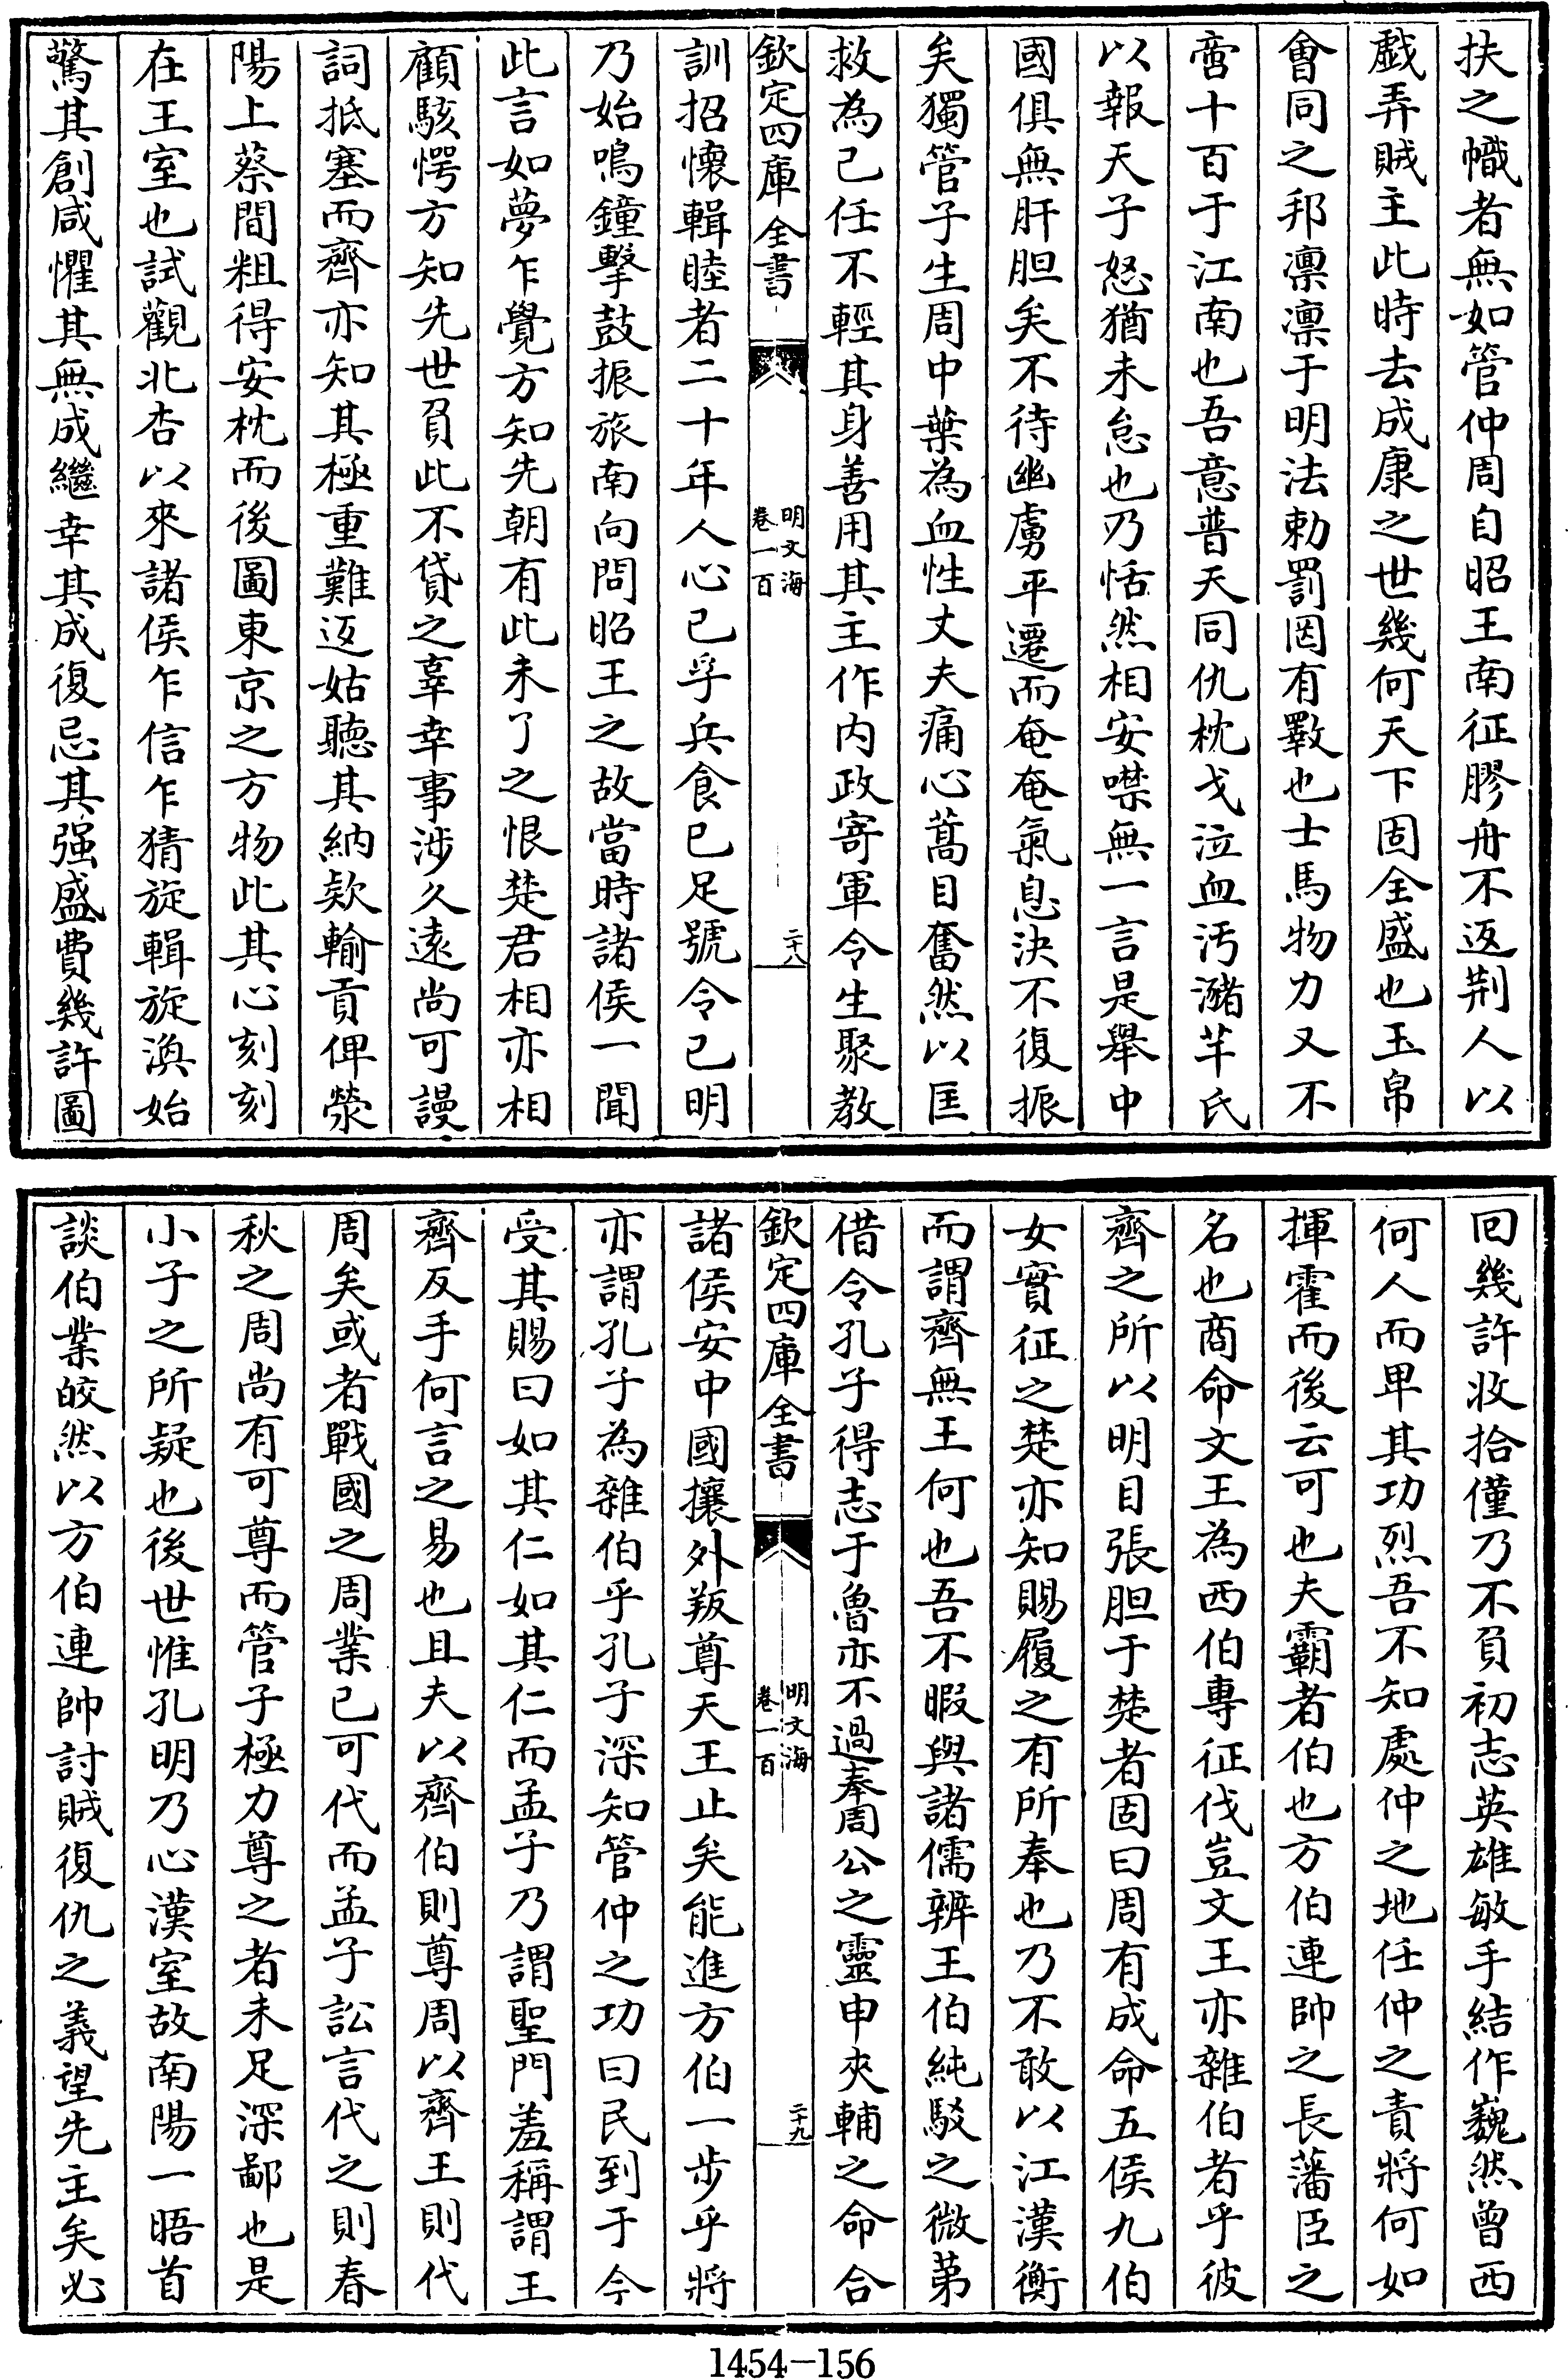 扶之幟者無如管仲周自昭王南征膠舟不返荆人以
戲弄賊主此時去成康之世幾何天下固全盛也玉帛
會同之邦凛凛于明法勅罰罔有斁也士馬物力又不
啻十百于江南也吾意普天同仇枕戈泣血汚瀦芊氏
以報天子怒猶未怠也乃恬然相安噤無一言是舉中
國俱無肝胆矣不待幽虜平遷而奄奄氣息決不復振
矣獨管子生周中葉為血性丈夫痛心蒿目奮然以匡
救為己任不輕其身善用其主作内政寄軍令生聚教
欽定四庫全書
明文海
卷一百
二十八
訓招懐輯睦者二十年人心已孚兵食已足號令已明
乃始鳴鐘擊鼓振旅南向問昭王之故當時諸侯一聞
此言如夢乍覺方知先朝有此未了之恨楚君相亦相
顧駭愕方知先世負此不貸之辜幸事涉久遠尚可謾
詞抵塞而齊亦知其極重難迈姑聽其納欵輸貢俾滎
陽上蔡間粗得安枕而後圖東京之方物此其心刻刻
在王室也試觀北杏以來諸侯乍信乍猜旋輯旋渙始
驚其創咸懼其無成繼幸其成復忌其强盛費幾許圖
回幾許收拾僅乃不負初志英雄敏手結作巍然曾西
何人而卑其功烈吾不知處仲之地任仲之責將何如
揮霍而後云可也夫霸者伯也方伯連帥之長藩臣之
名也商命文王為西伯專征伐豈文王亦雜伯者乎彼
齊之所以明目張胆于楚者固曰周有成命五侯九伯
女實征之楚亦知賜履之有所奉也乃不敢以江漢衡
而謂齊無王何也吾不暇與諸儒辨王伯純駁之微第
借令孔子得志于魯亦不過奉周公之靈申夾輔之命合
欽定四庫全書
明文海
卷一百
二十九
諸侯安中國攘外叛尊天王止矣能進方伯一步乎將
亦謂孔子為雜伯乎孔子深知管仲之功曰民到于今
受其賜曰如其仁如其仁而孟子乃謂聖門羞稱謂王
齊反手何言之易也且夫以齊伯則尊周以齊王則代
周矣或者戰國之周業已可代而孟子訟言代之則春
秋之周尚有可尊而管子極力尊之者未足深鄙也是
小子之所疑也後世惟孔明乃心漢室故南陽一晤首
談伯業皎然以方伯連帥討賊復仇之義望先主矣必
1454-156